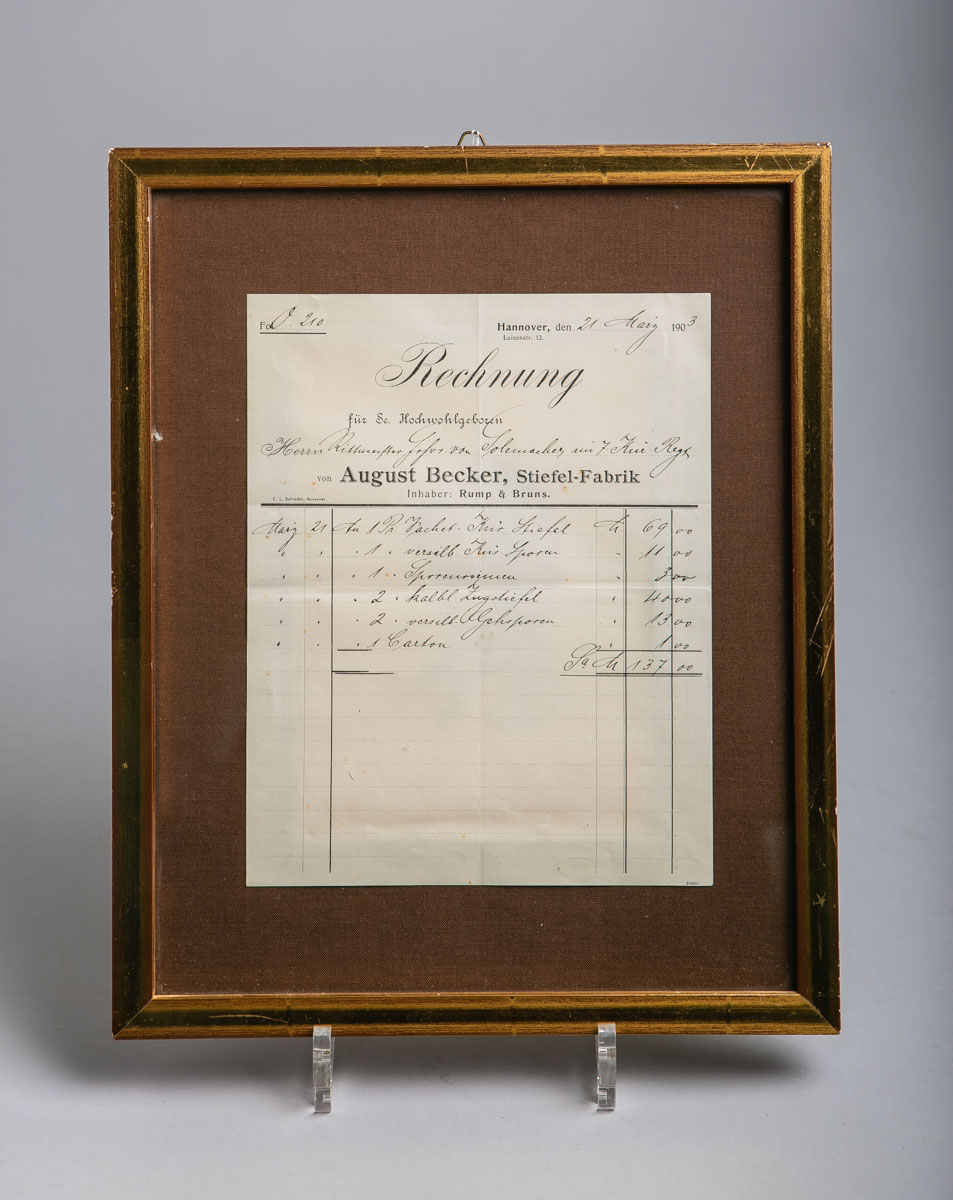 Fol. 210
Hannover, den 21 März 1903
Luisenstr. 12.
Rechnung
für Se. Hochwohlgeboren
Herrn Rittmeister von Solemacher im 7 Kür. Regt
von August Becker, Stiefel-Fabrik
Inhaber: Rump & Bruns.
März 21 An 1 Pr. Vachet. Kür. Stiefel M 69 00
" " " 1 " versilb. Kür. Sporen " 11 00
" " " 1 " Sporenriemen " 3 00
" " " 2 " kalbl. Zugstiefel " 40 00
" " " 2 " versilb. Gehsporen 13 00
" " " 1 Carton " 1 00
Sa. M 137 00